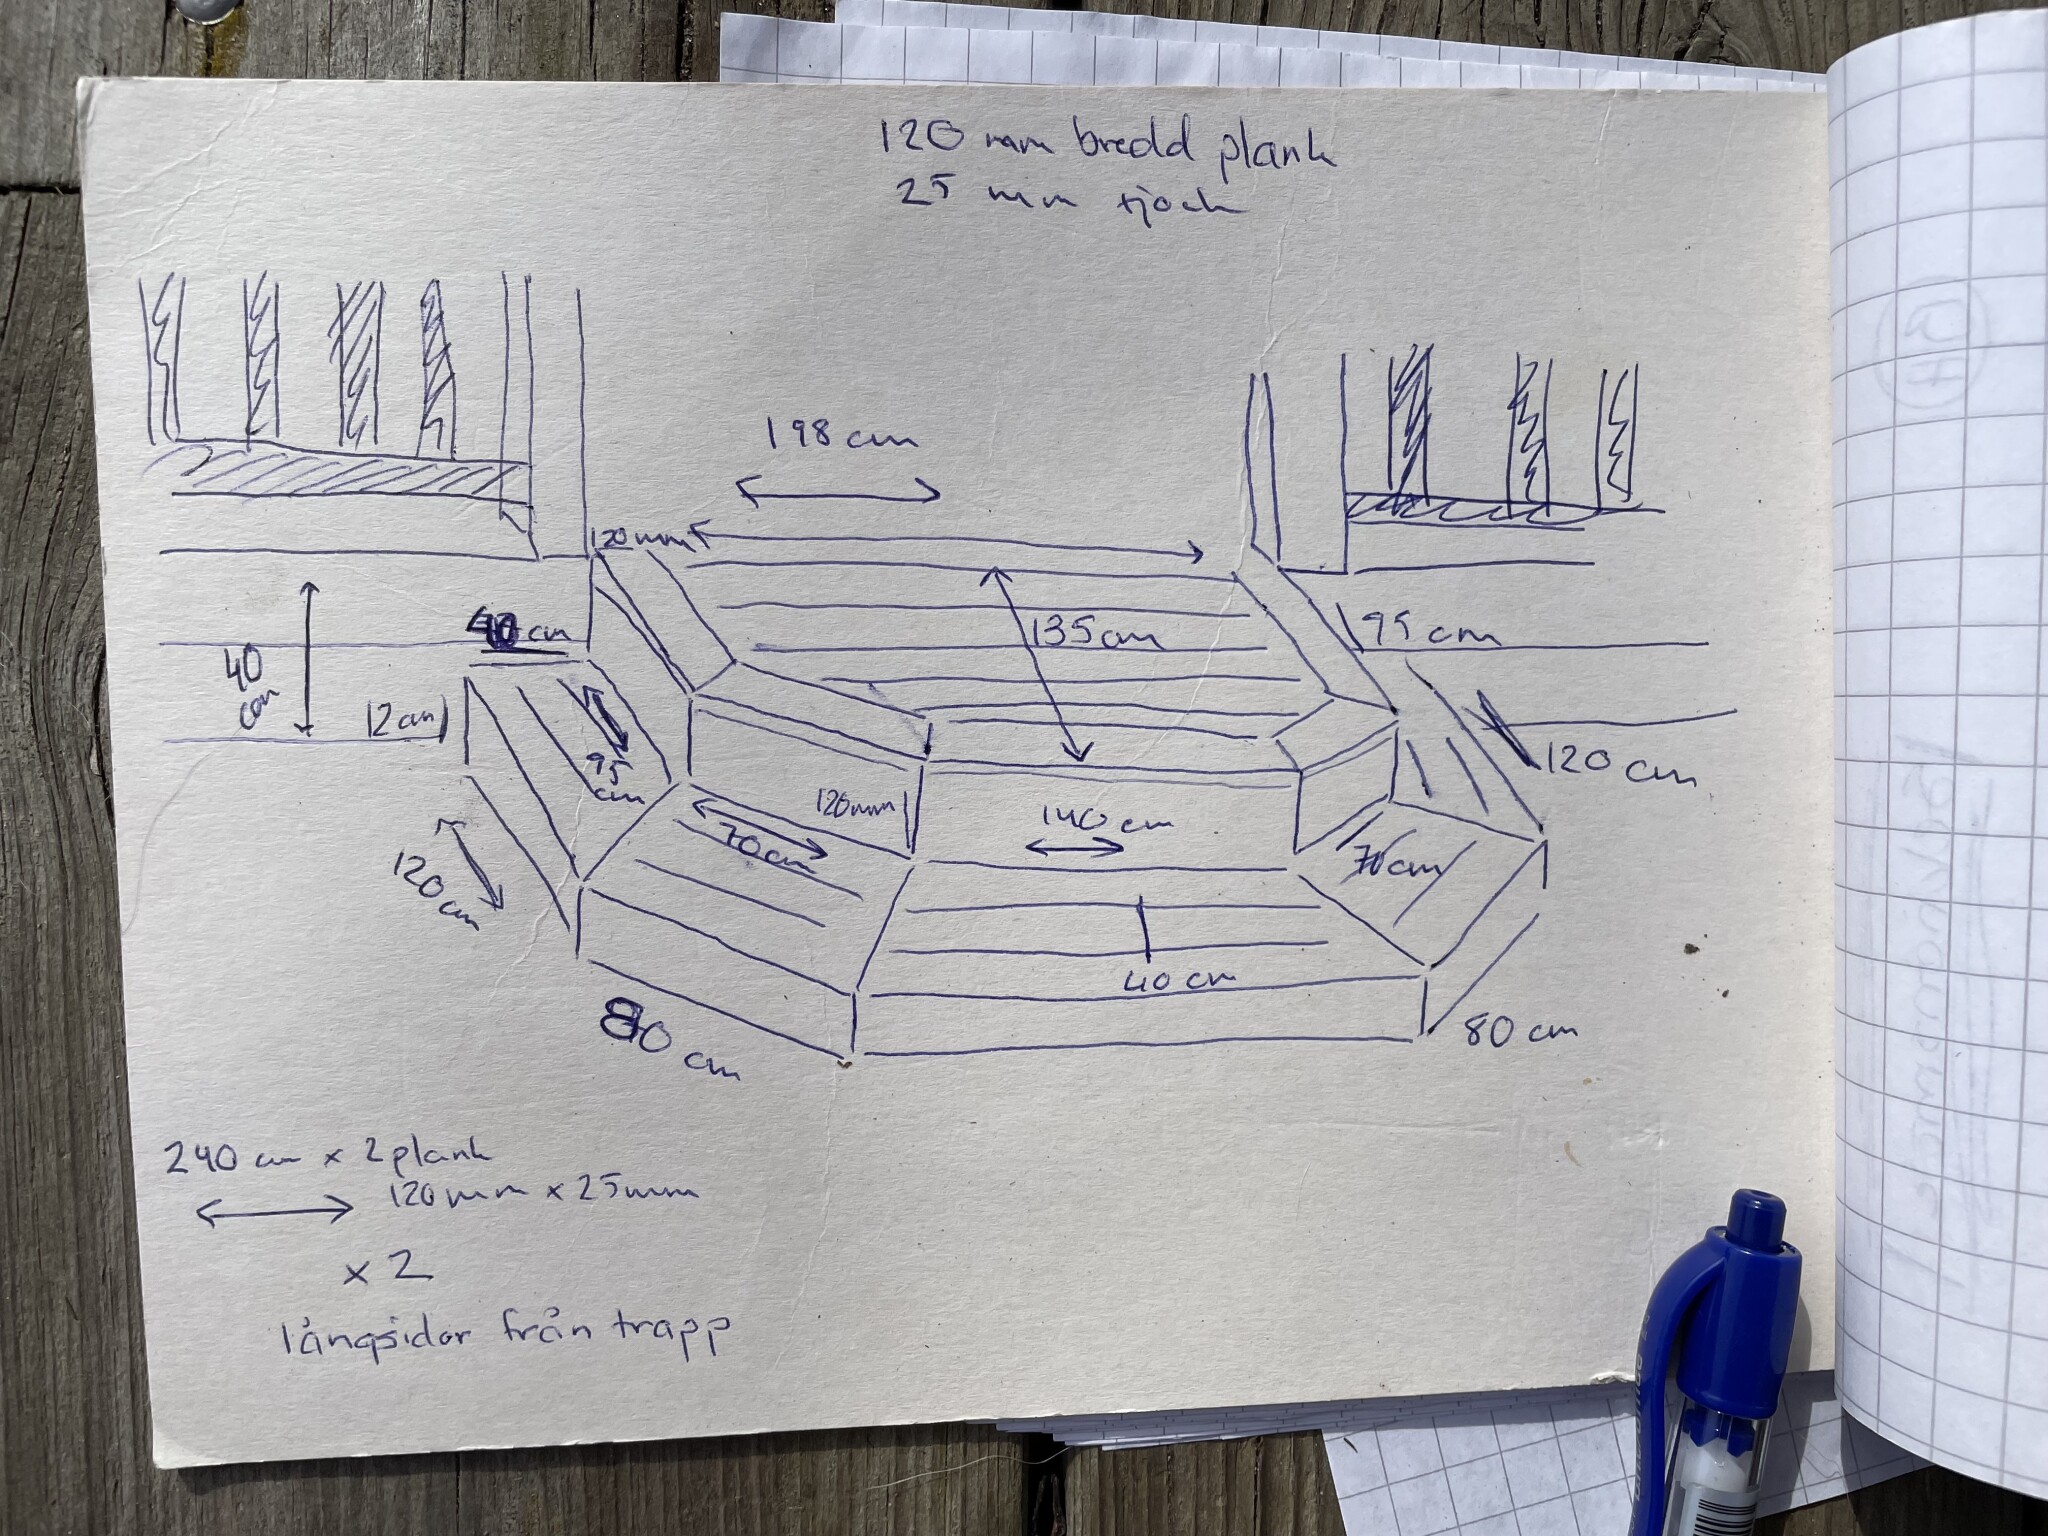 120 mm bredd plank
25 mm tjock
198 cm
120mm
40 cm
135cm
95 cm
40
cm
12cm
95
cm
120 cm
120mm
140 cm
70cm
70cm
120cm
40 cm
80 cm
80 cm
240 cm x 2 plank
120mm x 25mm
x 2
långsidor från trapp